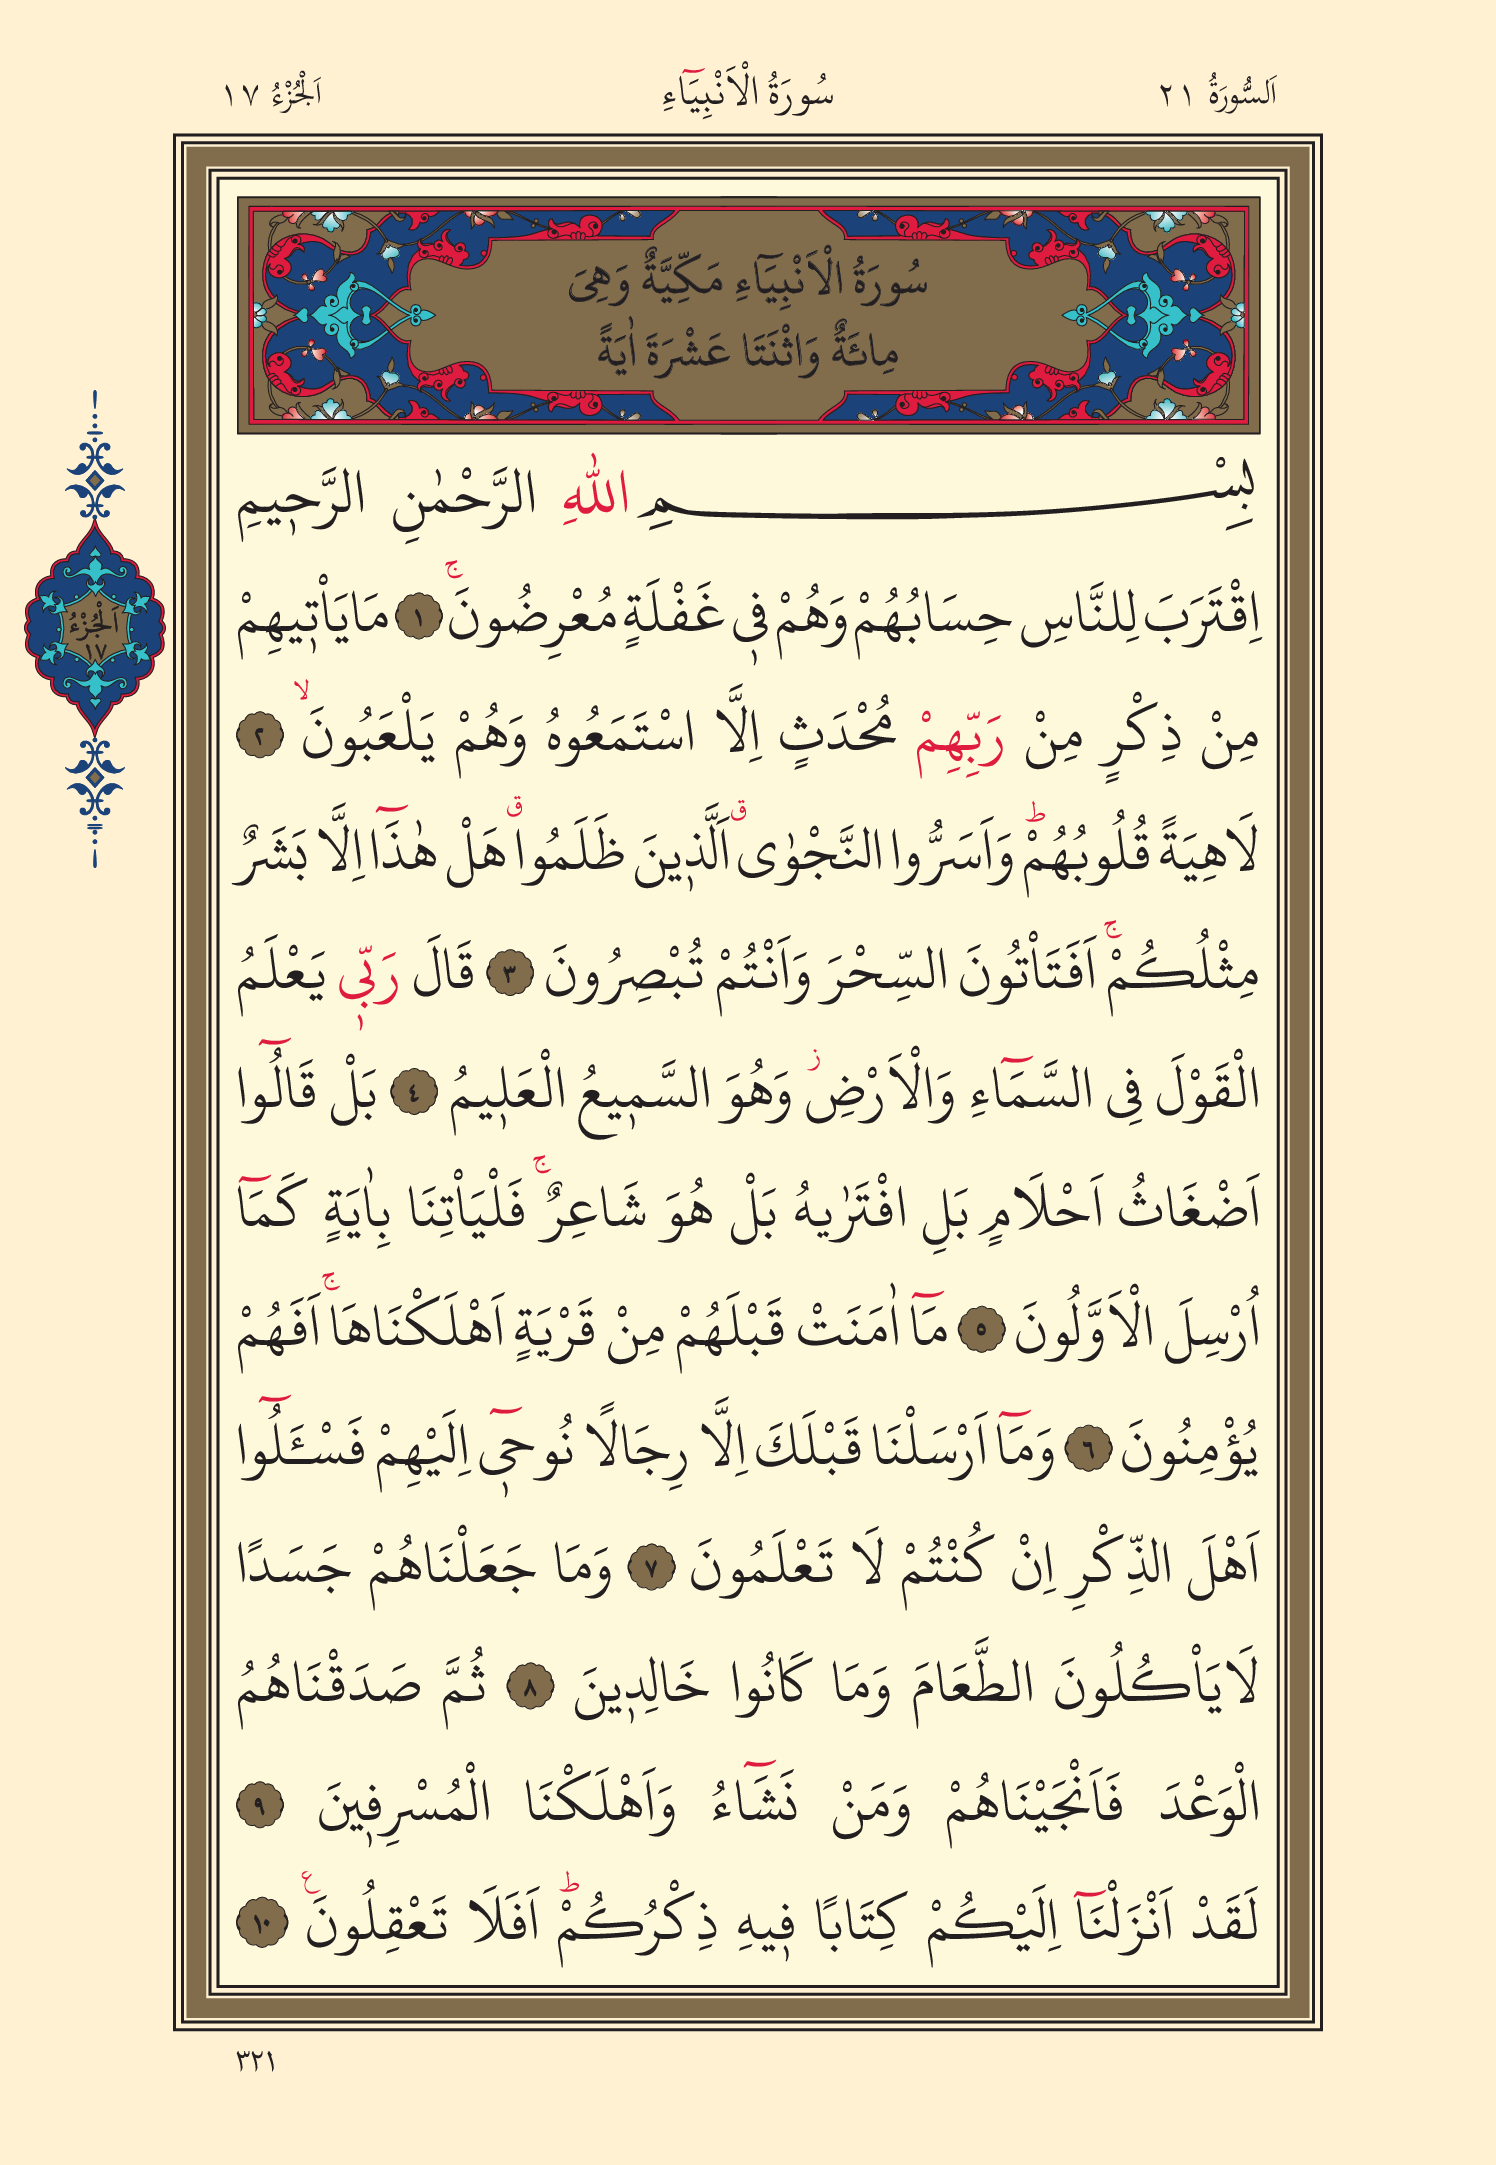 اَلسُّورَةُ ٢١
سُورَةُ الْاَنْبِيَٓاءِ
اَلْجُزْءُ ١٧
سُورَةُ الْاَنْبِيَٓاءِ مَكِّيَّةٌ وَهِىَ
مِائَةٌ وَاثْنَتَا عَشْرَةَ اٰيَةً
بِسْــــــــــمِ اللّٰهِ الرَّحْمٰنِ الرَّح۪يمِ
اِقْتَرَبَ لِلنَّاسِ حِسَابُهُمْ وَهُمْ ف۪ى غَفْلَةٍ مُعْرِضُونَۚ ١ مَايَاْت۪يهِمْ
مِنْ ذِكْرٍ مِنْ رَبِّهِمْ مُحْدَثٍ اِلَّا اسْتَمَعُوهُ وَهُمْ يَلْعَبُونَۙ ٢
لَاهِيَةً قُلُوبُهُمْۜ وَاَسَرُّوا النَّجْوٰىۗ اَلَّذ۪ينَ ظَلَمُواۗ هَلْ هٰذَٓا اِلَّا بَشَرٌ
مِثْلُكُمْۚ اَفَتَاْتُونَ السِّحْرَ وَاَنْتُمْ تُبْصِرُونَ ٣ قَالَ رَبّ۪ى يَعْلَمُ
الْقَوْلَ فِى السَّمَٓاءِ وَالْاَرْضِۘ وَهُوَ السَّم۪يعُ الْعَل۪يمُ ٤ بَلْ قَالُٓوا
اَضْغَاثُ اَحْلَامٍ بَلِ افْتَرٰيهُ بَلْ هُوَ شَاعِرٌۚ فَلْيَاْتِنَا بِاٰيَةٍ كَمَٓا
اُرْسِلَ الْاَوَّلُونَ ٥ مَٓا اٰمَنَتْ قَبْلَهُمْ مِنْ قَرْيَةٍ اَهْلَكْنَاهَاۚ اَفَهُمْ
يُؤْمِنُونَ ٦ وَمَٓا اَرْسَلْنَا قَبْلَكَ اِلَّا رِجَالًا نُوح۪ٓى اِلَيْهِمْ فَسْـَٔلُٓوا
اَهْلَ الذِّكْرِ اِنْ كُنْتُمْ لَا تَعْلَمُونَ ٧ وَمَا جَعَلْنَاهُمْ جَسَدًا
لَايَاْكُلُونَ الطَّعَامَ وَمَا كَانُوا خَالِد۪ينَ ٨ ثُمَّ صَدَقْنَاهُمُ
الْوَعْدَ فَاَنْجَيْنَاهُمْ وَمَنْ نَشَٓاءُ وَاَهْلَكْنَا الْمُسْرِف۪ينَ ٩
لَقَدْ اَنْزَلْنَٓا اِلَيْكُمْ كِتَابًا ف۪يهِ ذِكْرُكُمْۜ اَفَلَا تَعْقِلُونَࣖ ١٠
اَلْجُزْءُ
١٧
٣٢١